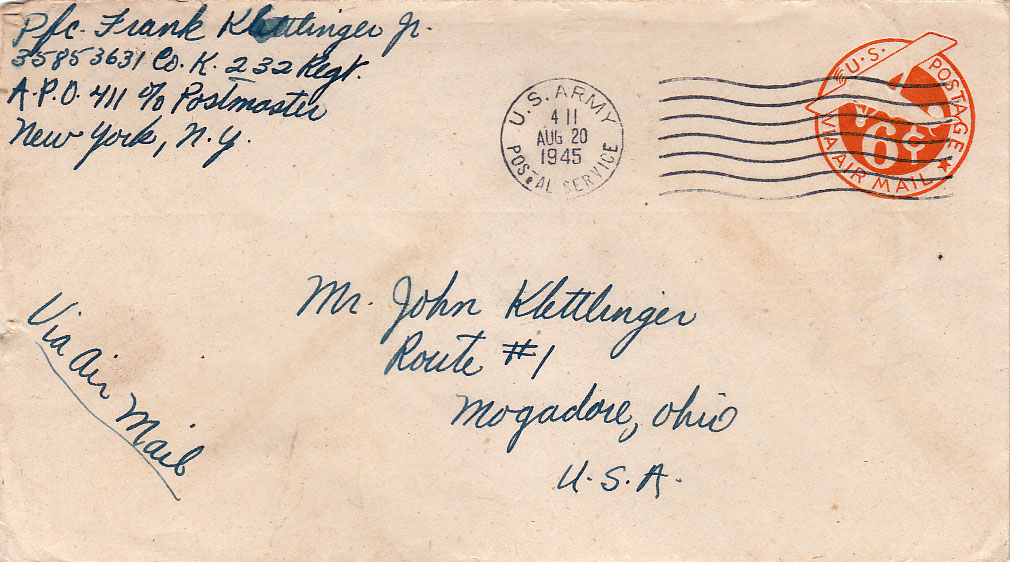 Pfc. Frank Klettlinger Jr.
35853631 Co. K. 232 Regt.
A.P.O. 411 c/o Postmaster
New York, N.Y.
U.S. ARMY
4 11
AUG 20
1945
POSTAL SERVICE
U.S. POSTAGE
6¢
VIA AIR MAIL
Mr. John Klettlinger
Route #1
Mogadore, Ohio
U.S.A.
Via Air Mail